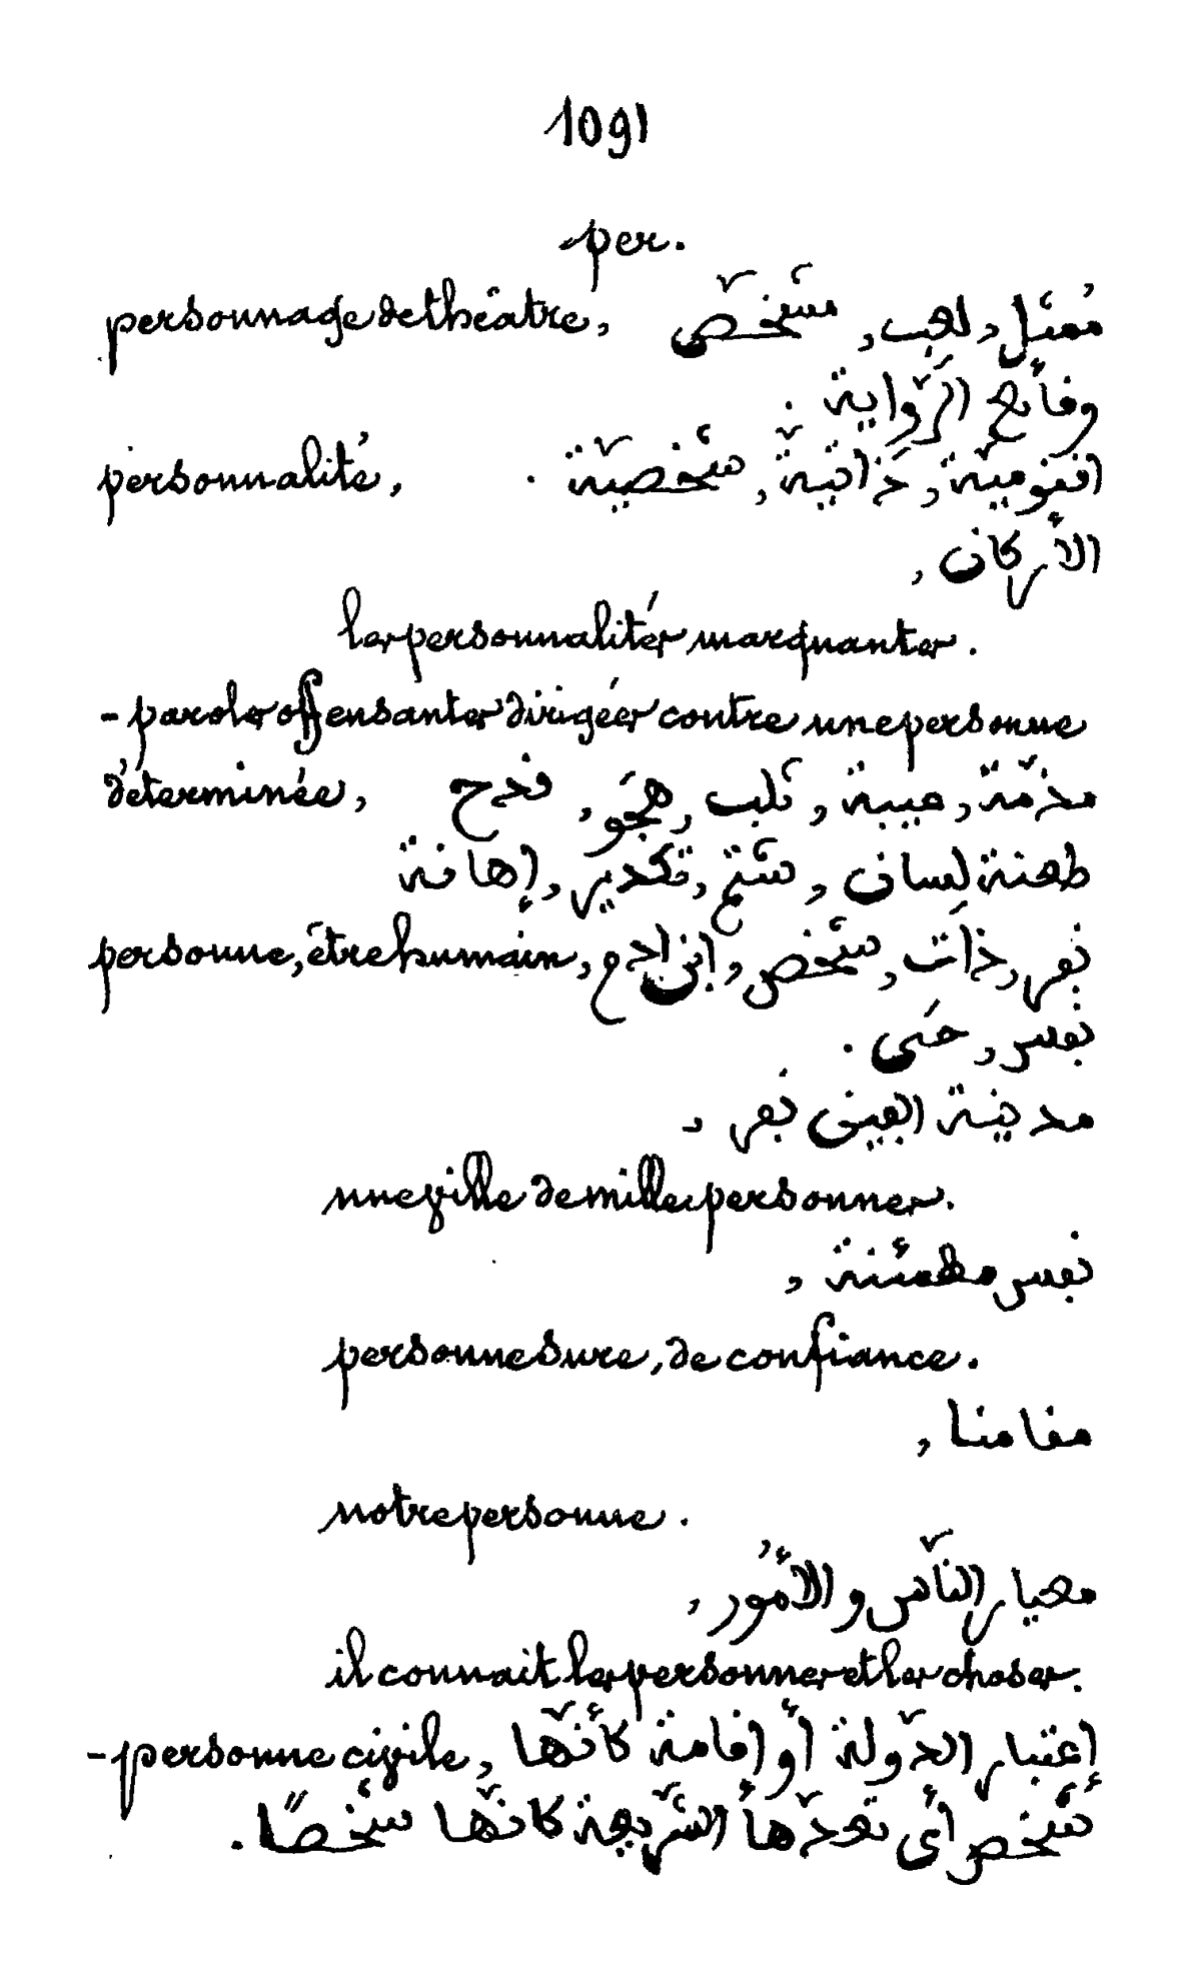 1091
per.
personnage de théâtre, ممثل, لاعب, مشخّص
وقائع الرّواية .
personnalité, اقنومية, ذاتيّة, شخصيّة .
الأركان ,
les personnalités marquantes.
- paroles offensantes dirigées contre une personne
déterminée, مذمّة, عيبة, ثلب, هجو, قدح
طعنة لسان, شتم, تكدير, إهانة
personne, être humain, نفر, ذات, شخص, ابن ادم
نفس, حي .
مدينة البين نفر ,
une ville de mille personnes.
نفس مطمئنة ,
personne sure, de confiance.
مقامنا ,
notre personne.
معيار النّاس والأمور ,
il connait les personnes et les choses.
- personne civile, إعتبار الدّولة أو إقامة كأنّها
شخص أي تعدّها الشّريعة كانّها شخصًا .